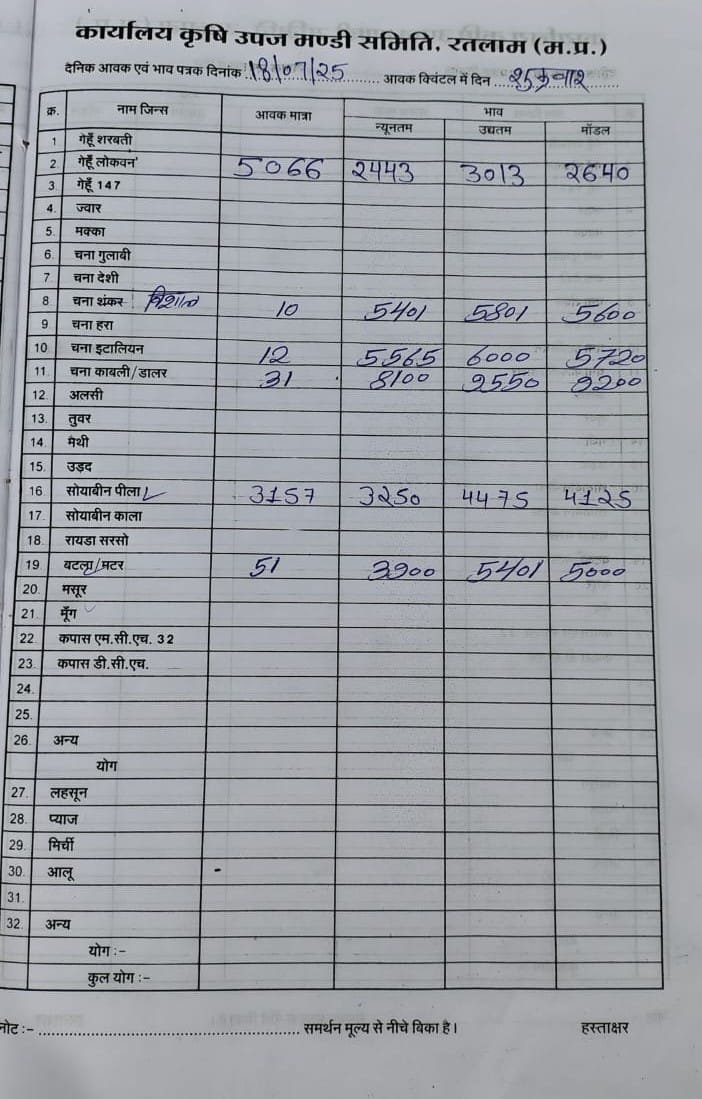 कार्यालय कृषि उपज मण्डी समिति, रतलाम (म.प्र.)
दैनिक आवक एवं भाव पत्रक दिनांक 18/07/25 आवक क्विंटल में दिन शुक्रवार
क्र. नाम जिन्स आवक मात्रा भाव
न्यूनतम उच्चतम मॉडल
1 गेहूँ शरबती
2. गेहूँ लोकवन 5066 2443 3013 2640
3. गेहूँ 147
4. ज्वार
5. मक्का
6. चना गुलाबी
7. चना देशी
8. चना शंकर विशाल 10 5401 5801 5600
9 चना हरा
10. चना इटालियन 12 5565 6000 5720
11. चना काबली/डालर 31 8100 9550 9200
12. अलसी
13. तुवर
14. मैथी
15. उड़द
16. सोयाबीन पीला 3157 3250 4475 4125
17. सोयाबीन काला
18. रायडा सरसो
19 बटला/मटर 51 3900 5401 5000
20. मसूर
21. मूँग
22. कपास एम.सी.एच. 32
23. कपास डी.सी.एच.
24.
25.
26. अन्य
योग
27. लहसून
28. प्याज
29. मिर्ची
30. आलू
31.
32. अन्य
योग :-
कुल योग :-
नोट :- समर्थन मूल्य से नीचे बिका है। हस्ताक्षर